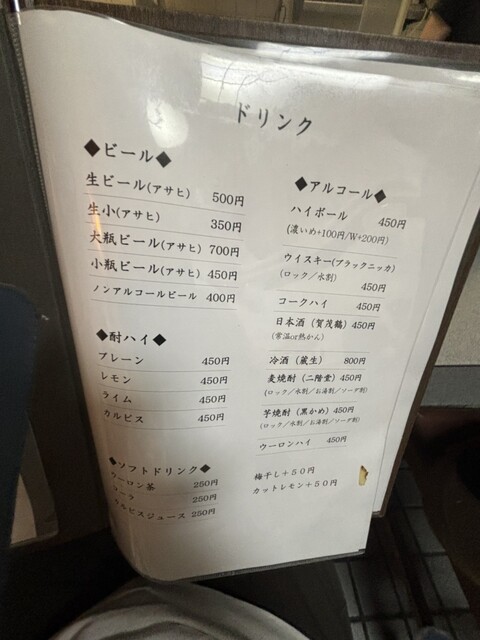 ドリンク
◆ビール◆
生ビール(アサヒ) 500円
生小(アサヒ) 350円
大瓶ビール(アサヒ) 700円
小瓶ビール(アサヒ) 450円
ノンアルコールビール 400円
◆酎ハイ◆
プレーン 450円
レモン 450円
ライム 450円
カルピス 450円
◆ソフトドリンク◆
ウーロン茶 250円
コーラ 250円
カルピスジュース 250円
◆アルコール◆
ハイボール 450円
(濃いめ+100円/W+200円)
ウイスキー(ブラックニッカ)
(ロック/水割) 450円
コークハイ 450円
日本酒(賀茂鶴) 450円
(常温or熱かん)
冷酒(蔵生) 800円
麦焼酎(二階堂) 450円
(ロック/水割/お湯割/ソーダ割)
芋焼酎(黒かめ) 450円
(ロック/水割/お湯割/ソーダ割)
ウーロンハイ 450円
梅干し+50円
カットレモン+50円